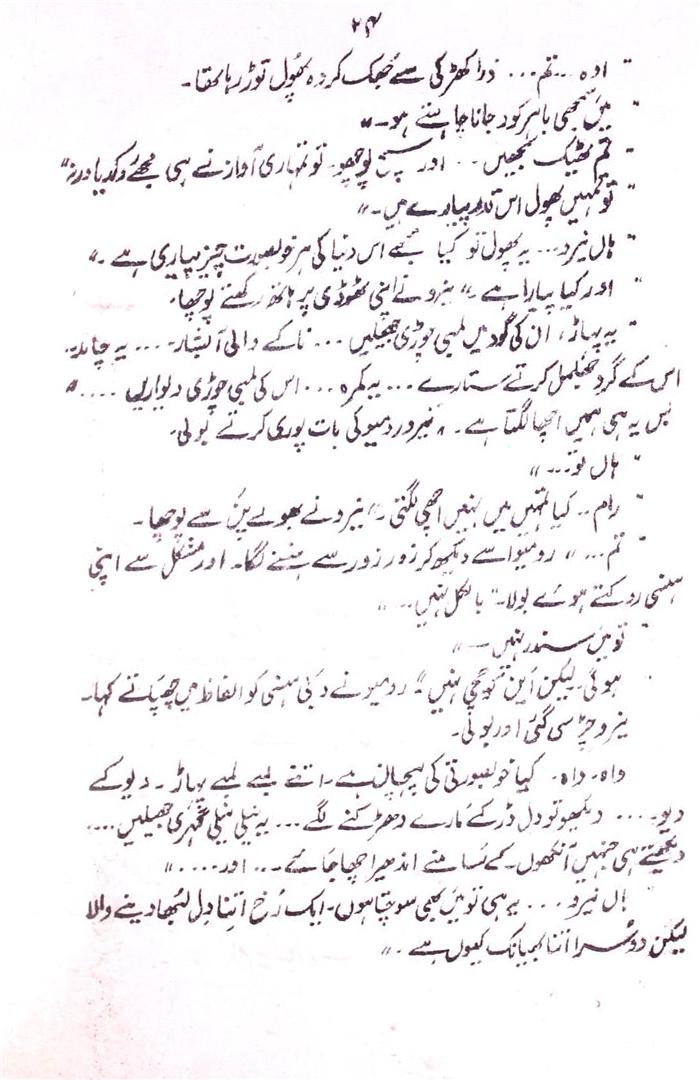 ۲۴
" اوہ ... تم ... ذرا کھڑکی سے جُھک کر وہ پھُول توڑ رہا تھا۔
" میں سمجھی باہر کود جانا چاہتے ہو۔"
" تم ٹھیک سمجھیں... اور سچ پوچھو۔ تو تمہاری آواز نے ہی مجھے روکدیا ورنہ"
" تو تمہیں پھول اس قدر پیارے ہیں۔"
" ہاں نیرو... یہ پھول تو کیا مجھے اس دنیا کی ہر خوبصورت چیز پیاری ہے۔"
" اور کیا پیارا ہے۔" نیرو نے اپنی ٹھوڈی پر ہاتھ رکھتے پوچھا۔
" یہ پہاڑ، ان کی گود میں لمبی چوڑی جھیلیں ... ناکے والی آبشار.... یہ چاند۔
اس کے گرد جھلمل کرتے ستارے ... یہ کمرہ ... اس کی لمبی چوڑی دیواریں ...."
بس یہ ہی ہمیں اچھا لگتا ہے۔ " نیرو ردمیو کی بات پوری کرتے بولی۔
" ہاں تو... "
" رام.. کیا تمہیں میں نہیں اچھی لگتی۔" نیرو نے بھولے پن سے پوچھا۔
" تم ... " رومیو اسے دیکھ کر زور زور سے ہنسنے لگا۔ اور مشکل سے اپنی
ہنسی روکتے ہوئے بولا۔ " بالکل نہیں... "
" تو میں سندر نہیں — "
" ہوگی۔ لیکن اَین کوچی نہیں"۔ رومیو نے دبی ہنسی کو الفاظ میں چھپاتے کہا۔
نیرو چِڑ سی گئی اور بولی۔
واہ۔ واہ۔ کیا خوبصورتی کی پہچان ہے۔ اتنے لمبے لمبے پہاڑ۔ دیو کے
دیو.... دیکھو تو دل ڈر کے مارے دھڑکنے لگے ... یہ نیلی نیلی گہری جھیلیں ....
دیکھتے ہی جنہیں آنکھوں۔ کے سَامنے اندھیرا چھا جائے ... اور .... "
" ہاں نیرو ... یہ ہی تو میں بھی سوچتا ہوں۔ ایک رُخ اتنا دِل لُبھا دینے والا
لیکن دوسرا اتنا بھیانک کیوں ہے۔ "